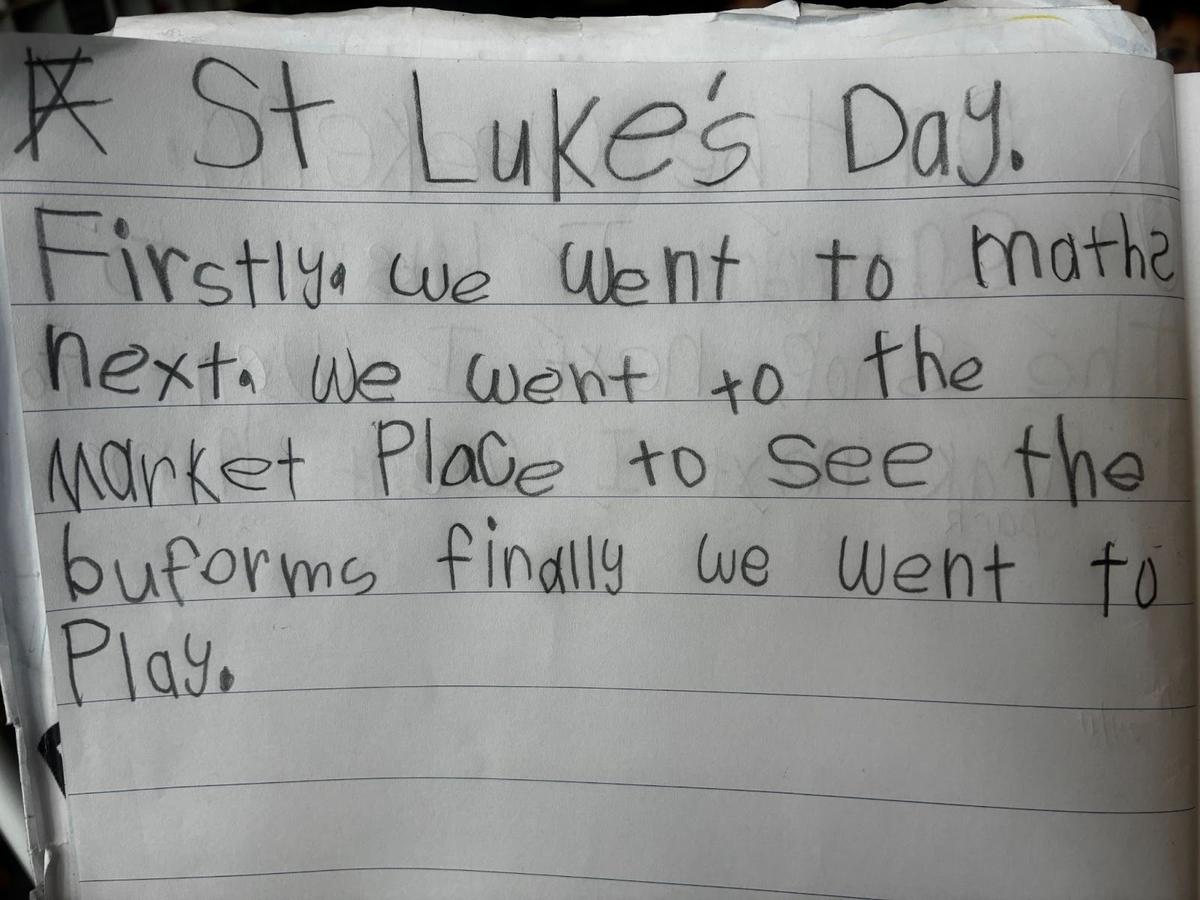 St Luke's Day.
Firstly. we went to maths
next. we went to the
market Place to see the
buforms finally we went to
Play.